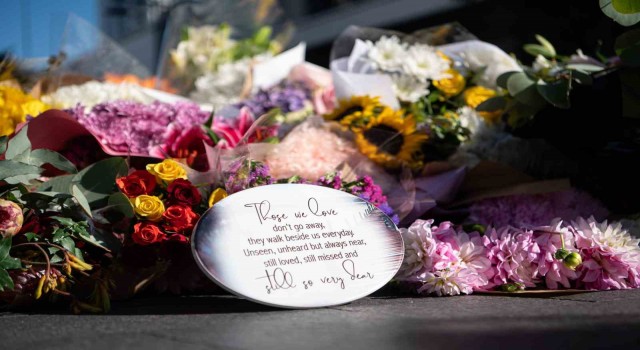 Those we love
don't go away,
they walk beside us everyday.
Unseen, unheard but always near,
still loved, still missed and
still so very dear